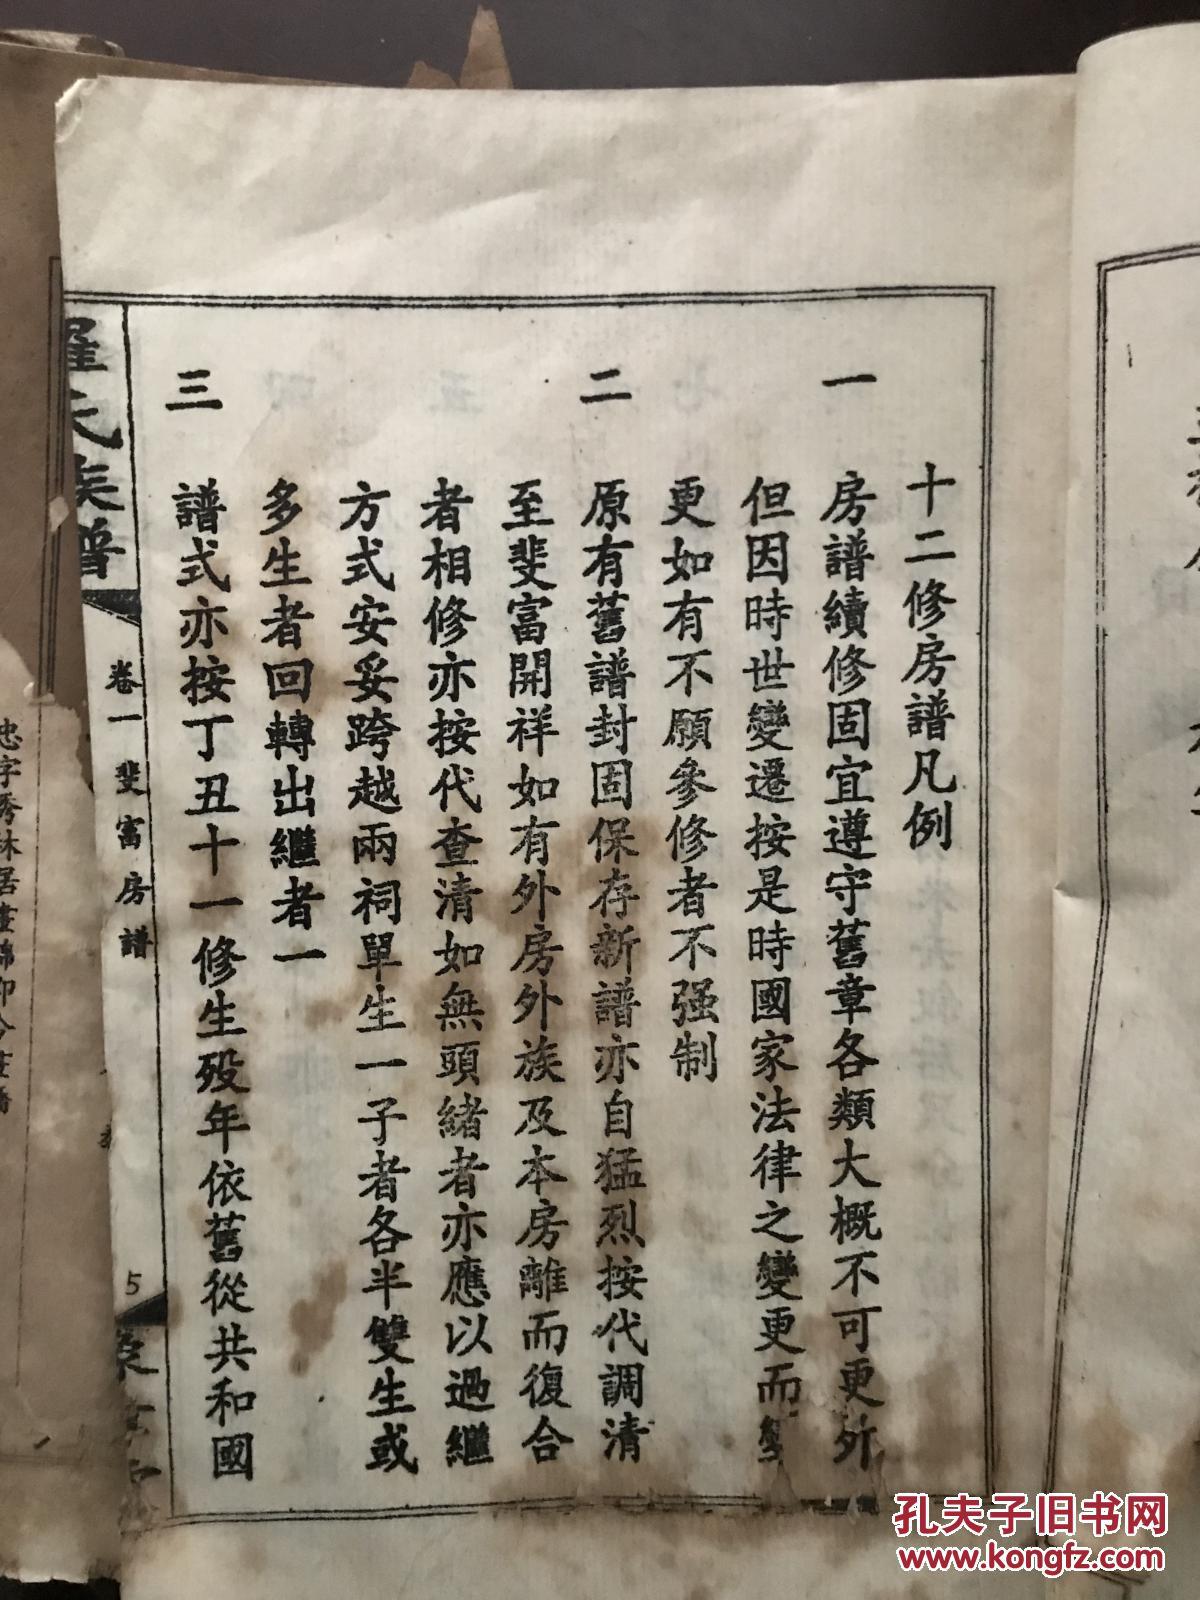 十二修房譜凡例
一 房譜續修固宜遵守舊章各類大概不可更外
但因時世變遷按是時國家法律之變更而變
更如有不願參修者不强制
二 原有舊譜封固保存新譜亦自猛烈按代調清
至斐富開祥如有外房外族及本房離而復合
者相修亦按代查清如無頭緒者亦應以過繼
方式安妥跨越兩祠單生一子者各半雙生或
多生者回轉出繼者一
三 譜式亦按丁丑十一修生殁年依舊從共和國
羅氏族譜
卷一 斐富房譜
5
忠字秀林居
孔夫子旧书网
www.kongfz.com